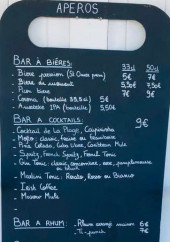 APEROS
BAR À BIÈRES: 33cl 50cl
- Bière pression (St Omer 5°) 5€ 7€
- Bière du moment 5,50€ 7,50€
- Picon bière 7€ 9€
- Corona (bouteille 35,5cl) 5€
- IPA (bouteille 5,50€
BAR A COCKTAILS: 9€
- Cocktail de La Plage, Caipirinha
- Mojito: classic, fraise ou
- Pina Colada, Cuba Libre, Caribbean Mule
- Spritz, French Spritz, French Tonic
- Gin Tonic: classic, concombre,
- Martini Tonic: Rosato, Rosso ou Bianco
- Irish Coffee
- Moscow Mule
BAR A RHUM: - Rhum arrangé maison 6€
- Ti-punch 7€